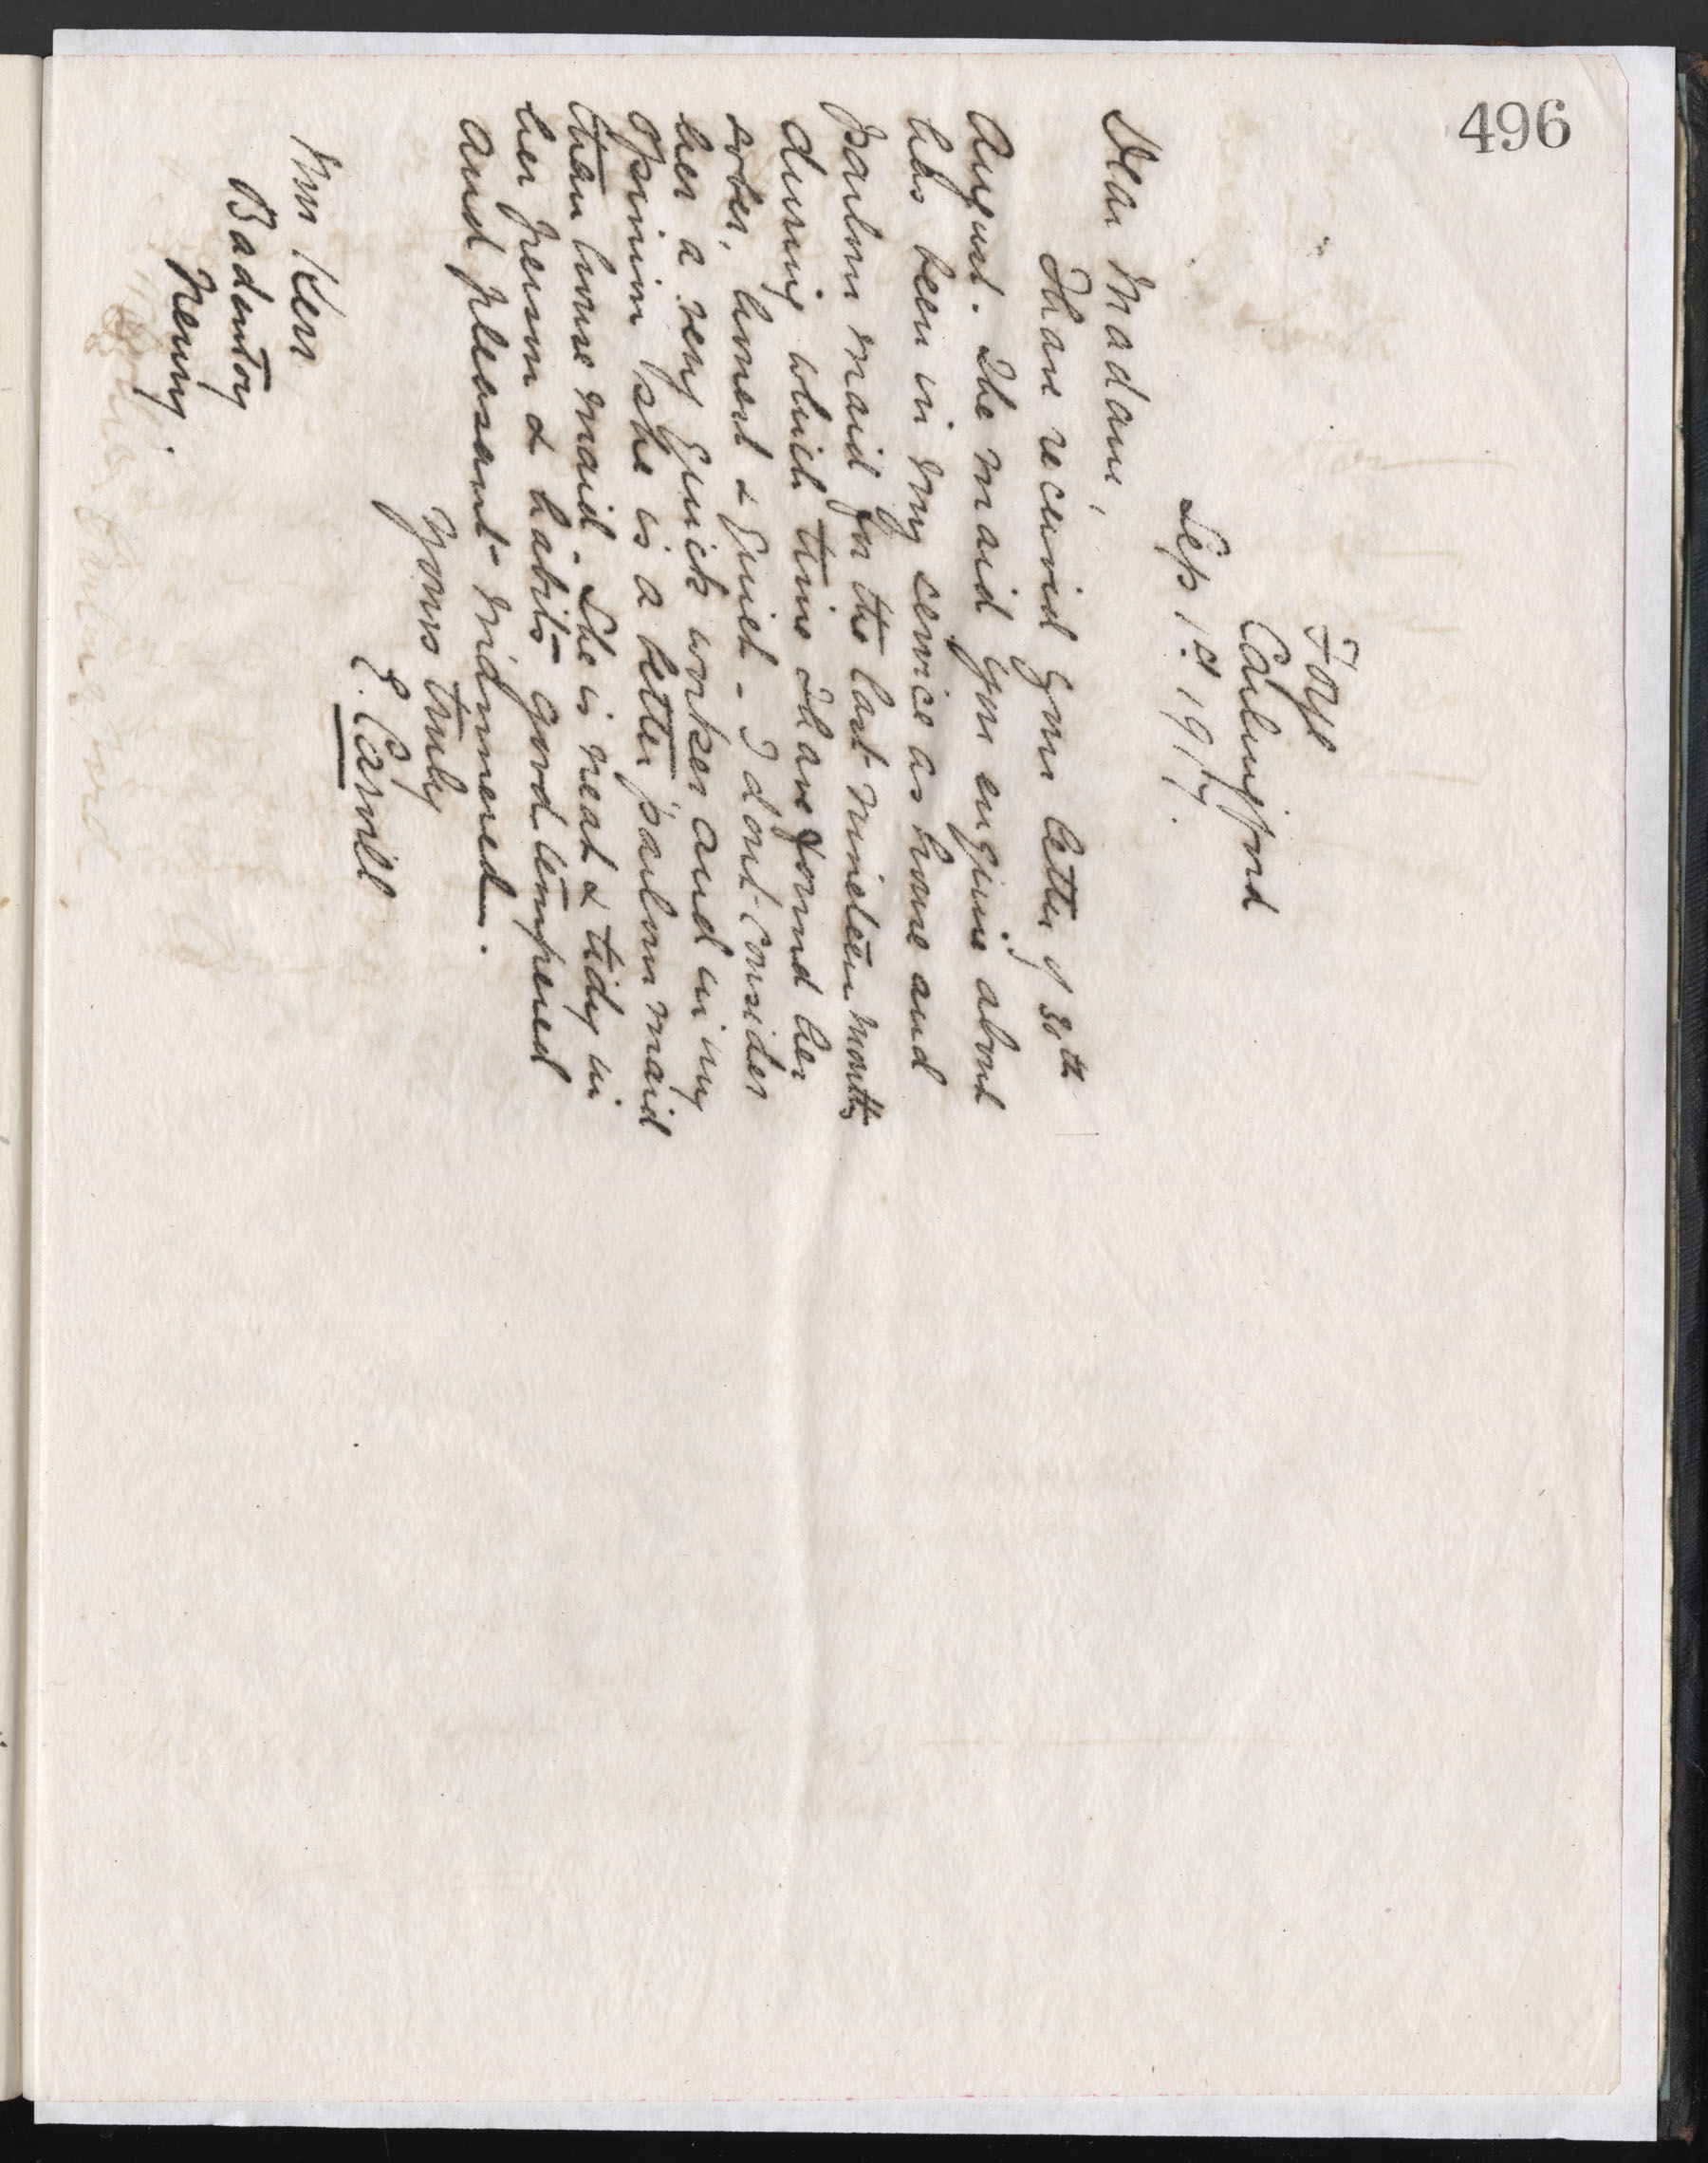 496
Foy
Carlingford
Sep 1st 1917.
Dear Madam,
I have received your letter of 30th
August. The maid you enquire about
has been in my service as house and
parlour maid for the last nineteen months
during which time I have found her
sober, honest & quiet - I dont consider
her a very quick worker and in my
opinion she is a better parlour maid
than house maid. She is neat & tidy in
her person & habits good tempered
and pleasant mannered.
Yours truly
E. Carvill
Mrs Kerr
Newry.